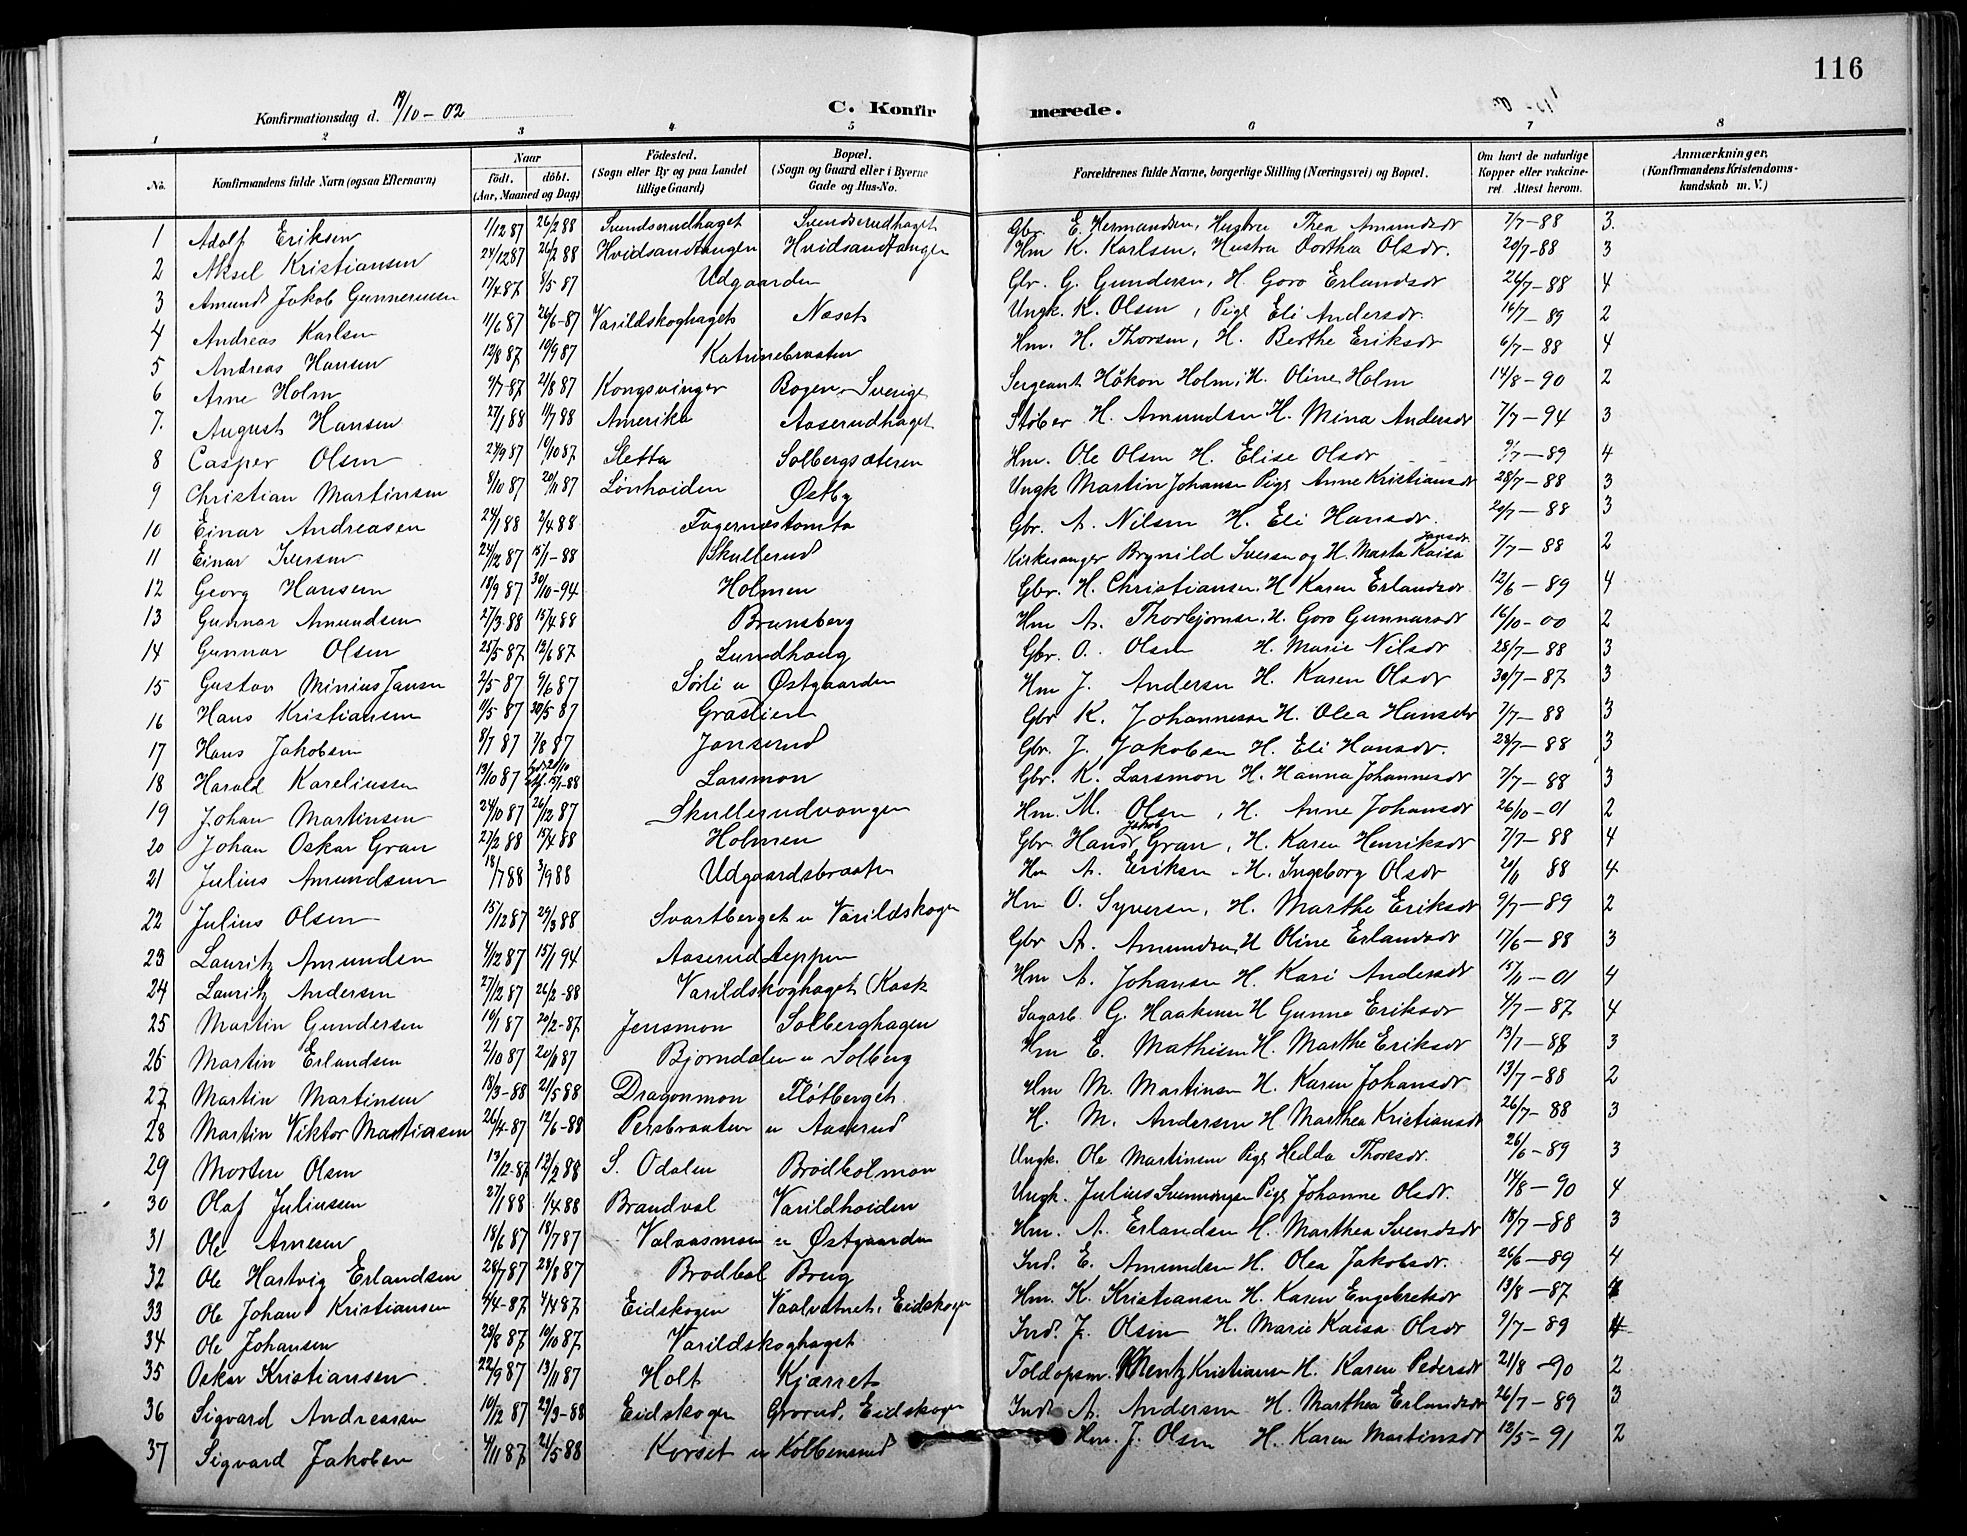 116
Konfirmationsdag d. 19/10 - 02
C. Konfirmerede.
1 2 3 4 5 6 7 8
No. Konfirmandens fulde Navn (ogsaa Efternavn) Naar födt. döbt. (Aar, Maaned og Dag) Födested. (Sogn eller By og paa Landet tillige Gaard) Bopæl. (Sogn og Gaard eller i Byerne Gade og Hus-No. Forældrenes fulde Navne, borgerlige Stilling (Næringsvei) og Bopæl. Om havt de naturlige Kopper eller vakcineret. Attest herom. Anmærkninger. (Konfirmandens Kristendomskundskab m. V.)
1 Adolf Eriksen 1/12 87 26/2 88 Svendserudhaget Svendserudhaget Gbr. E. Hermandsen, Hustru Thea Amundsdr 7/7-88 3.
2 Aksel Kristiansen 24/12 87 26/2 88 Hvidsandtangen Hvidsandtangen Hm K. Karlsen, Hustru Dorthea Olsdr. 20/7-88 3
3 Amund Jakob Gunnerusen 17/4 87 8/5 87 Udgaarden Gbr. G. Gundersen, H. Goro Erlandsdr 26/7-88 4
4 Andreas Karlsen 11/6 87 26/6-87 Varildskoghaget Næset Ungk. K. Olsen, Pige Eli Andersdr. 16/7-89 2
5 Andreas Hansen 12/8 87 10/9 87 Katrinebraaten Hm. H. Thorsen, H. Berthe Eriksdr 6/7-88 4
6 Arne Holm 7/7-87 21/8 87 Kongsvinger Bogen, Sverige Sergeant Håkon Holm, H. Oline Holm 14/8-90 2
7. August Hansen 27/1 88 1/7 88 Amerika Aaserudhaget Støber H. Amundsen H. Mina Andersdr 7/7-94 3
8 Casper Olsen 24/9 87 10/10 87 Sletta Solbergsæteren Hm. Ole Olsen H. Elise Olsdr 9/7-89 4
9 Christian Martinsen 8/10 87 20/11 87 Lønhoiden Østby Ungk Martin Johansen Pige Anne Kristiansdr 28/7-88 3
10 Einar Andreasen 24/1 88 2/4 88 Fagernæstomta Gbr. A. Nilsen H. Eli Hansdr. 20/7-88 3
11 Einar Iversen 24/12 87 15/1-88 Skullerud Kirkesanger Brynild Iversen og H. Marta Kaisa Jansdr 7/7-88 2
12 Georg Hansen 18/9 87 30/10-94 Holmen Gbr. H. Christiansen, H Karen Erlandsdr 12/6-89 4
13 Gunnar Amundsen 27/3-88 15/4 88 Brunsberg Hm A. Thorbjørnsen, H. Goro Gunnarsdr 16/10-00 2
14 Gunnar Olsen 25/5 87 12/6 87 Lundhaug Gbr. O. Olsen H. Marie Nilsdr 28/7-88 3
15 Gustav Minius Jansen 2/5 87 9/6 87 Sørli u Østgaarden Hm J. Andersen H. Karen Olsdr 30/7-87 3
16 Hans Kristiansen 11/5 87 30/5 87 Grastien Gbr K. Johannessen H. Olea Hansdr 7/7-88 3
17 Hans Jakobsen 8/7 87 7/8 87 Janserud Gbr. J. Jakobsen H. Eli Hansdr. 28/7-88 3
18 Harald Kareliussen 13/10 87 15/1-88 Larsmon Gbr. K. Larsmon H. Hanna Johannesdr 7/7-88 3
19 Johan Martinsen 24/10 87 26/12 87 Skullerudvangen Hm. M. Olsen, H. Anne Johansdr 26/10-01 2
20 Johan Oskar Gran 27/2 88 15/4 88 Holmen Gbr Hans Jakob Gran, H. Karen Henriksdr 7/7-88 4
21 Julius Amundsen 18/7 88 3/9 88 Udgaardsbraaten Hm A. Eriksen, H. Ingeborg Olsdr 20/11 88 4
22 Julius Olsen 15/12 87 29/3 88 Svartberget u Varildskogen Hm O. Syversen, H. Marthe Eriksdr 9/7-89 2
23 Lauritz Amundsen 4/12 87 15/1 94 Aaserudseppen Gbr A. Amundsen, H Oline Erlandsdr 17/6-88 3
24 Lauritz Andersen 27/12 87 26/2-88 Varildskoghaget (Kask Hm A. Johansen H. Kari Andersdr 15/11-01 4
25 Martin Gundersen 10/1 87 20/2-87 Jensmon Solberghagen Sagarb. G. Haakensen H Gunne Eriksdr 4/7-87 4
26 Martin Erlandsen 2/10 87 20/11 87 Bjørndalen u Solberg Hm E. Mathisen H. Marthe Eriksdr 13/7-88 3
27 Martin Martinsen 18/3-88 21/5 88 Dragonmon Fløtberget. Hm M. Martinsen H. Karen Johansdr 13/7-88 2
28 Martin Viktor Martiasen 26/4-87 12/6-88 Persbraaten u Aaserud H. M. Andersen H Marthea Kristiansdr 26/7-88 3
29 Morten Olsen 13/12-87 12/2 88 S. Odalen Brødbølmon Ungk. Ole Martinsen Pige Hedda Thoresdr. 26/6-89 3
30 Olaf Juliussen 27/1 88 1/4 88 Brandval Varildhoiden Ungk. Julius Svenningsen Pige Johanne Olsdr. 14/8-90 4
31 Ole Arnesen 18/6 87 18/7 87 Valaasmoen u Østgaarden Hm. A. Erlandsen H. Marthea Svendsdr 18/7-88 3
32 Ole Hartvig Erlandsen 28/7 87 28/8 87 Brødbøl Brug Ind. E. Amundsen H. Olea Jakobsdr. 26/6-89 4
33 Ole Johan Kristiansen 4/4-87 4/4 87 Eidskogen Vaalvatnet, Eidskogen Hm. K. Kristiansen H. Karen Engebretsdr 13/8-87 4
34 Ole Johansen 28/8 87 10/10 87 Varildskoghaget Ind. J. Olsen H. Marie Kaisa Olsdr 9/7-89 4
35 Oskar Kristiansen. 22/9 87 13/11 87 Holt Kjærret Toldopsm. Mentz Kristiansen H. Karen Pedersdr 21/8-90 2
36 Sigvard Andreasen 10/12 87 29/3-88 Eidskogen Grorud, Eidskogen Ind. A. Andersen H. Marthea Erlandsdr 26/7-89 3
37 Sigvard Jakobsen 4/11 87 21/5 88 Korset u Kolbensrud Hm. J. Olsen H. Karen Martinsdr 12/5-91 2